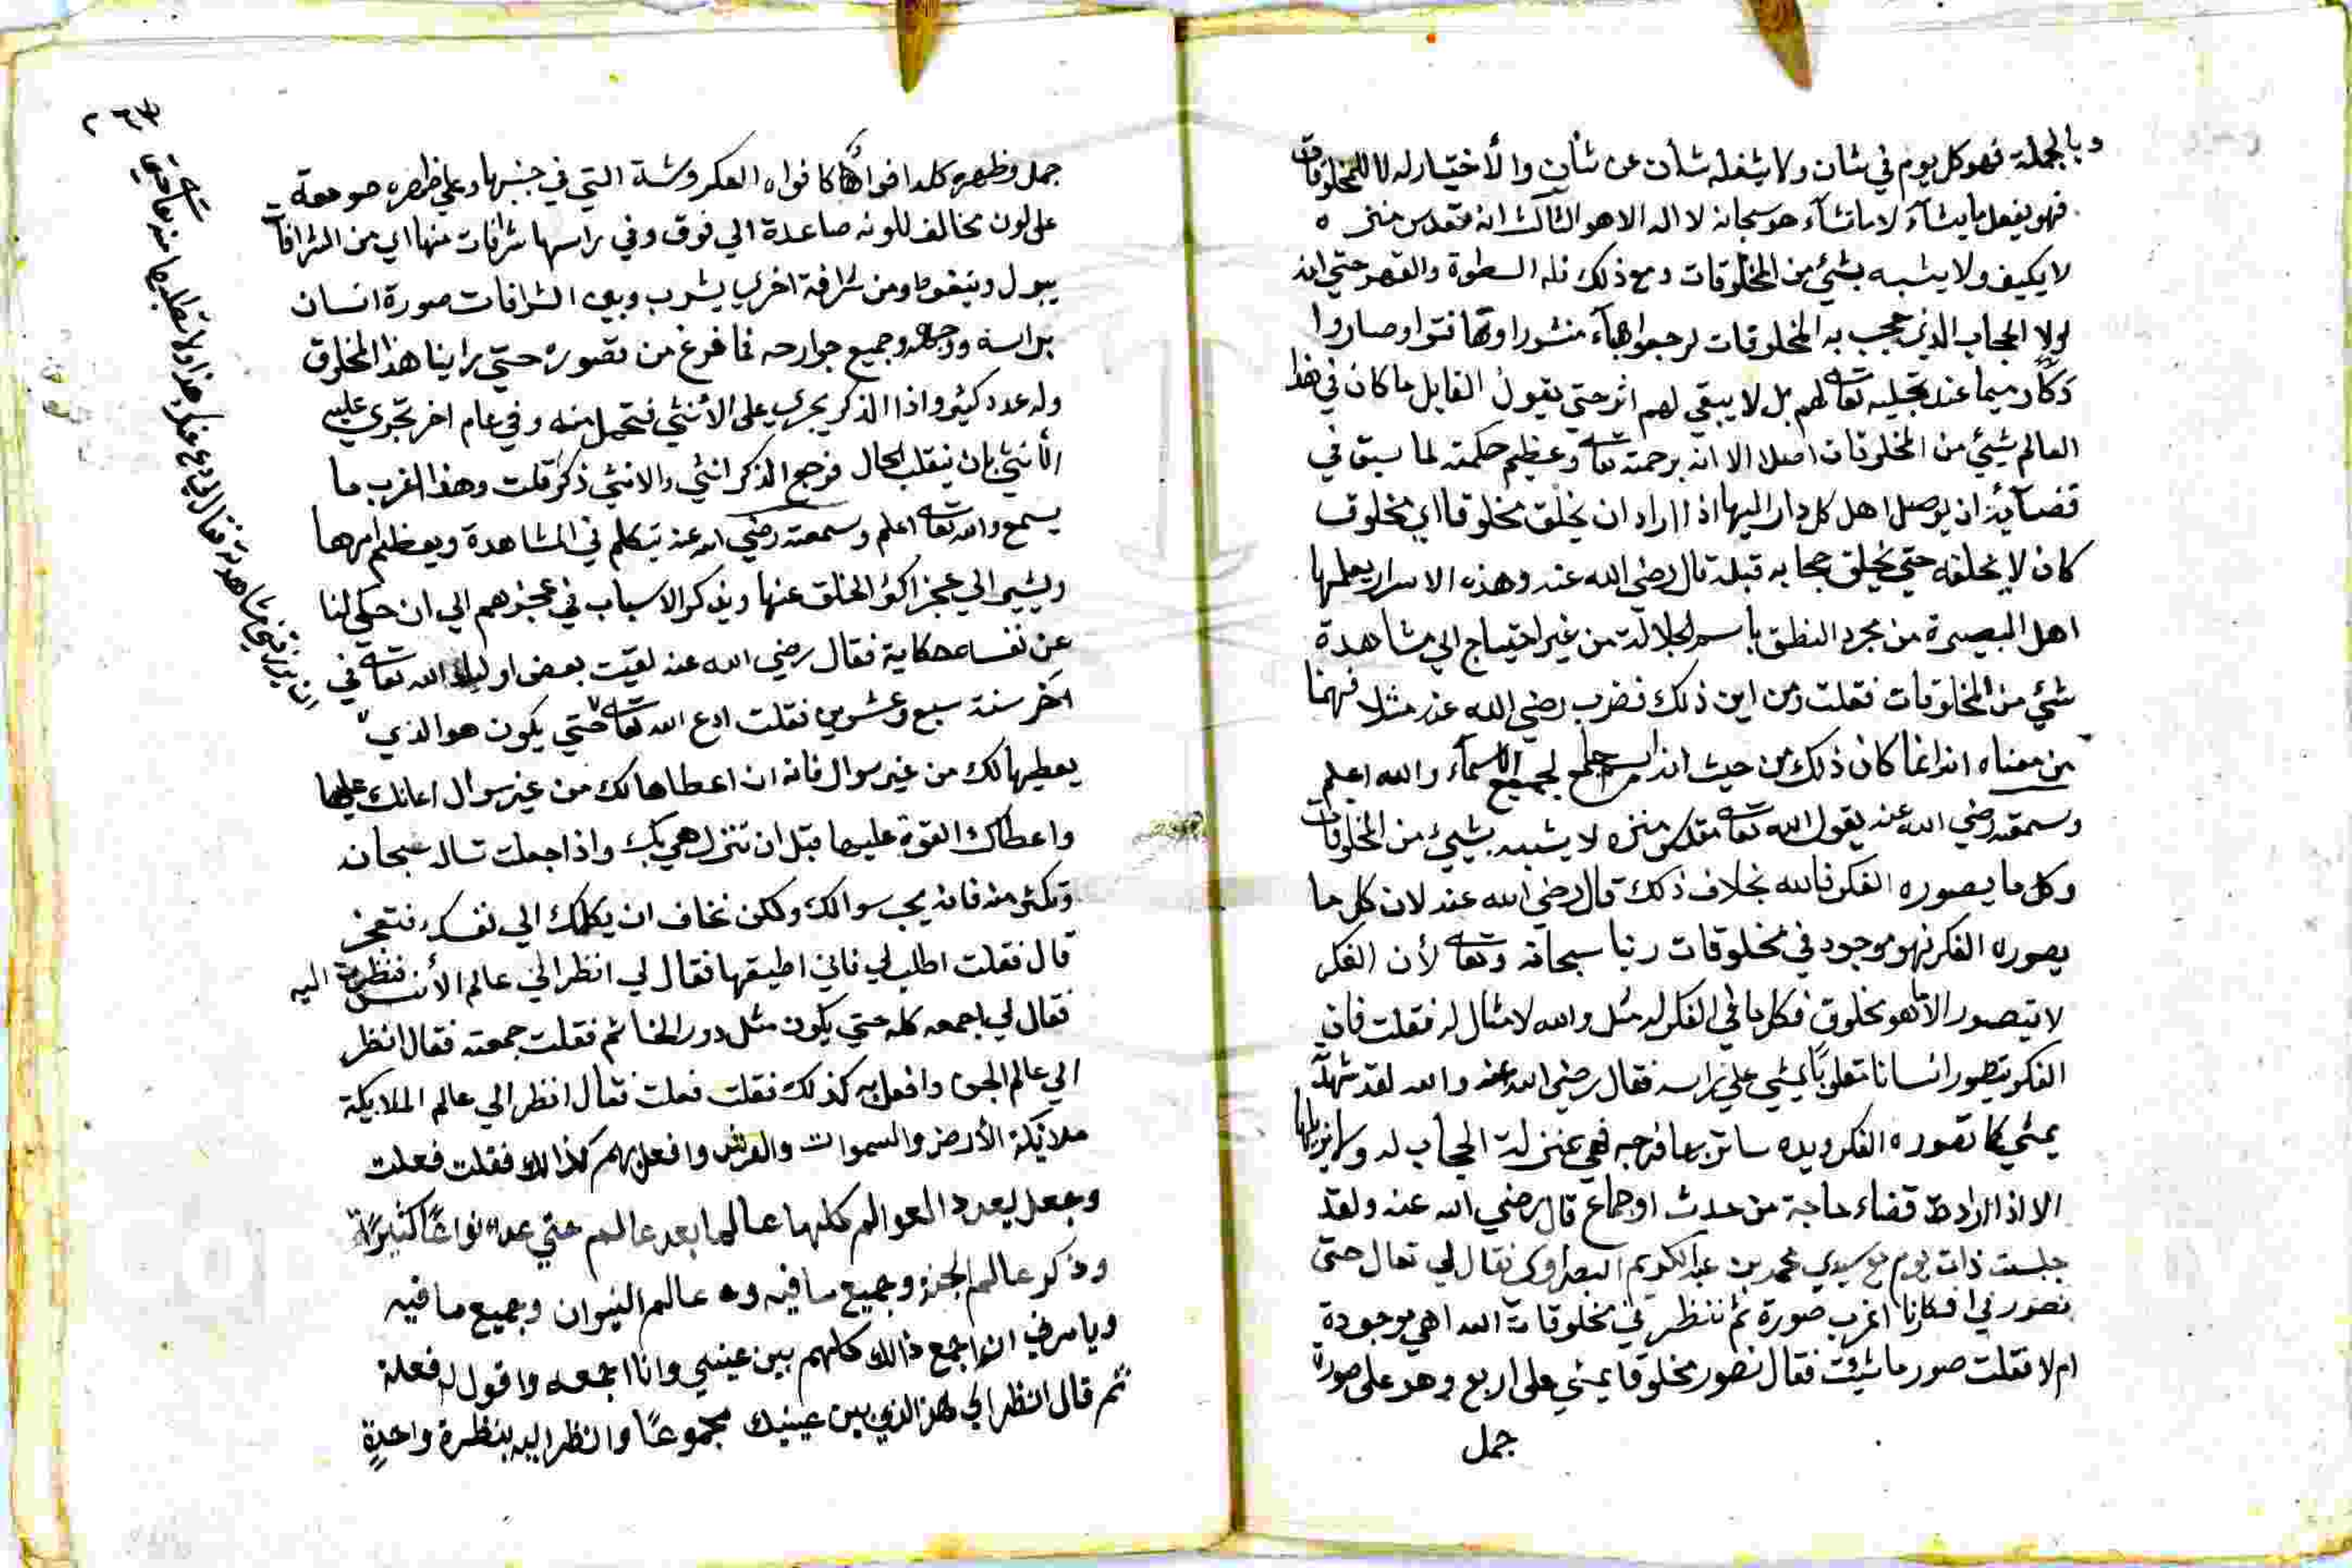 وبالجملة فهو كل يوم في شان ولا يشغله شان عن شان والأختيار له لا للمخلوقات
فهو يفعل ما يشآء لا ما نشآء هو سبحانه لا اله الا هو الثالث انه مقدس منزه
لا يكيف ولا يشبه بشيئ من المخلوقات ومع ذلك فله السطوة والقهر حتي انه
لولا الحجاب الذي حجب به المخلوقات لرجعوا هبآء منثورا وتهافتوا وصاروا
دكا رميما عند تجليه تعالى لهم بل لا يبقي لهم اثر حتي يقول القايل ما كان في هذا
العالم شيئ من المخلوقات اصلا الا انه برحمته تعالى وعظيم حكمته لما سبق في
قضآيه ان يوصل اهل كل دار اليها اذا اراد ان يخلق مخلوقا اي مخلوق
كان لا يخلقه حتي يخلق حجابه قبله قال رضي الله عنه وهذه الاسرار يعلمها
اهل البصيرة من مجرد النطق باسم الجلالة من غير احتياج الي مشاهدة
شيئ من المخلوقات فقلت ومن اين ذلك فضرب رضي الله عنه مثلا فهمنا
من معناه انه انما كان ذلك من حيث انه اسم جامع لجميع الاسمآء والله اعلم
وسمعته رضي الله عنه يقول الله تعالى مقدس منزه لا يشبه بشيئ من المخلوقات
وكل ما يصوره الفكر فالله بخلاف ذلك قال رضي الله عنه لان كل ما
يصوره الفكر فهو موجود في مخلوقات ربنا سبحانه وتعالى لأن الفكر
لا يتصور الا ما هو مخلوق فكل ما في الفكر له مثل والله لا مثال له فقلت فان
الفكر يتصور انسانا مقلوبا يمشي علي راسه فقال رضي الله عنه والله لقد شهدته
يمشي كما تصوره الفكر ويده ساتر بها فرجه فهي بمنزلة الحجاب له ولا يزيلها
الا اذا اراد قضاء حاجة من حدث او جماع قال رضي الله عنه ولقد
جلست ذات يوم مع سيدي محمد بن عبد الكريم البصراوي فقال لي تعال حتى
نصور في افكارنا اغرب صورة ثم ننظر في مخلوقات الله اهي موجودة
ام لا فقلت صور ما شيئت فقال نصور مخلوقا يمشي على اربع وهو على صورة
جمل
جمل وظهره كله افواه كافواه العكروشة التي في جنبها وعلي ظهره صومعة
على لون مخالف للونه صاعدة الي فوق وفي راسها شرافات منها اي من الشرافات
يبول ويتغوط ومن شرافة اخري يشرب وبين الشرافات صورة انسان
براسه ووجهه وجميع جوارحه فما فرغ من تصوره حتي راينا هذا المخلوق
وله عدد كثير واذا الذكر يجري على الأنثي فتحمل منه وفي عام اخر تجري عليه
الأنثي بان ينقلب الحال فيرجع الذكر انثي والانثي ذكرا قلت وهذا اغرب ما
يسمع والله تعالى اعلم وسمعته رضي الله عنه يتكلم في المشاهدة ويعظم امرها
ويشير الي عجز اكثر الخلق عنها ويذكر الاسباب في عجزهم الي ان حكي لنا
عن نفسه حكاية فقال رضي الله عنه لقيت بعض اولياء الله تعالى في
اخر سنة سبع وعشرين فقلت ادع الله تعالى
ان يرزقني مشاهدته فقال لي دع عنك هذا ولا تطلبها منه تعالى
حتي يكون هو الذي
يعطيها لك من غير سوال فانه ان اعطاها لك من غير سوال اعانك عليها
واعطاك القوة عليها قبل ان تنزل هي بك واذا جعلت تساله سبحانه
وتكثر منه فانه يجيب سوالك ولكن نخاف ان يكلك الي نفسك فتعجز
قال فقلت اطلب لي فاني اطيقها فقال لي انظر الي عالم الأنس فنظرت اليه
فقال لي اجمعه كله حتي يكون مثل دور الخاتم فقلت جمعته فقال انظر
الي عالم الجن وافعل به كذلك فقلت فعلت فقال انظر الي عالم الملايكة
ملائكة الأرض والسموات والعرش وافعل بهم كذالك فقلت فعلت
وجعل يعدد العوالم كلها عالما بعد عالم حتي عد انواعًا كثيرة
وذكر عالم الجنة وجميع ما فيه وعالم النيران وجميع ما فيه
ويامرني ان اجمع ذالك كلهم بين عيني وانا اجمعه واقول له فعلة
ثم قال انظر الي هذا الذي بين عينيك مجموعًا وانظر اليه بنظرة واحدةٍ